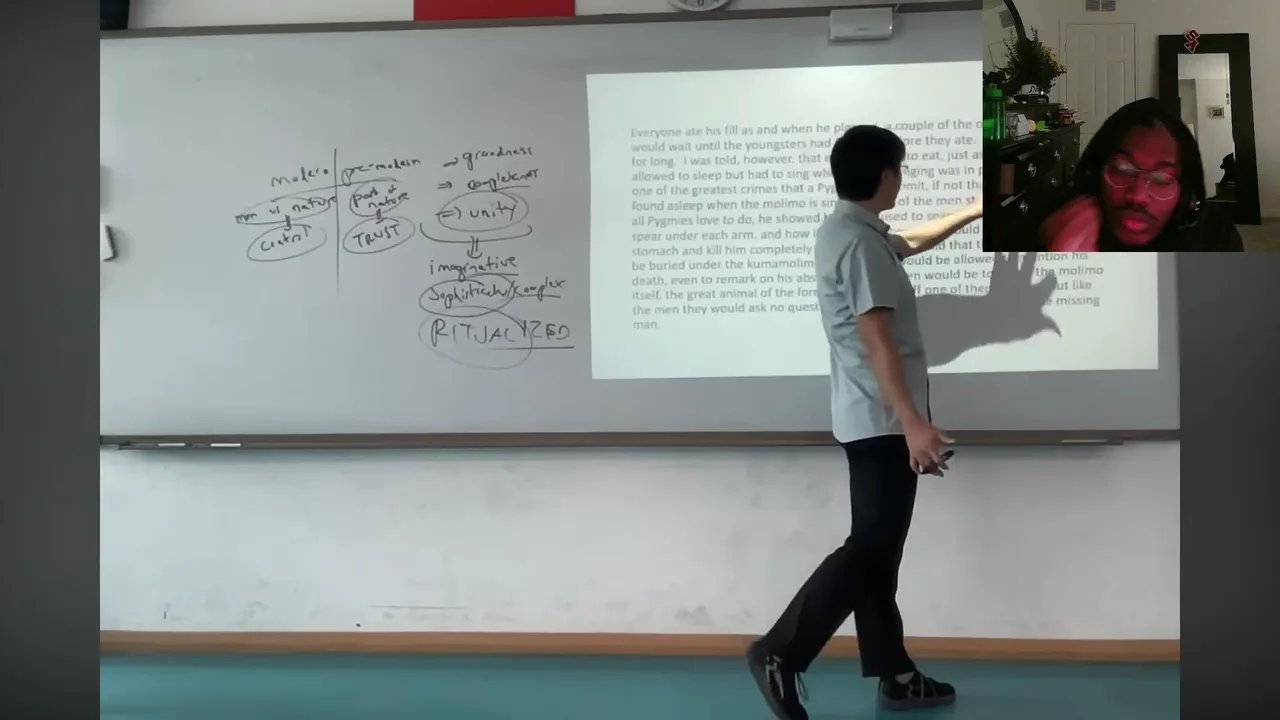 modern pre-modern
man vs nature
part of nature
control
TRUST
⇒ grandness
⇒ completeness
⇒ unity
imaginative
sophisticated/complex
RITUALIZED
Everyone ate his fill as and when he a couple of the
would wait until the youngsters had they ate.
for long. I was told, however, that to eat, just as
allowed to sleep but had to sing was in
one of the greatest crimes that a if not
found asleep when the molimo is of the men
all Pygmies love to do, he showed
spear under each arm, and how
stomach and kill him completely that
be buried under the kumamolimo would be allowed
death, even to remark on his women would be the molimo
itself, the great animal of the If one of but like
the men they would ask no missing
man.